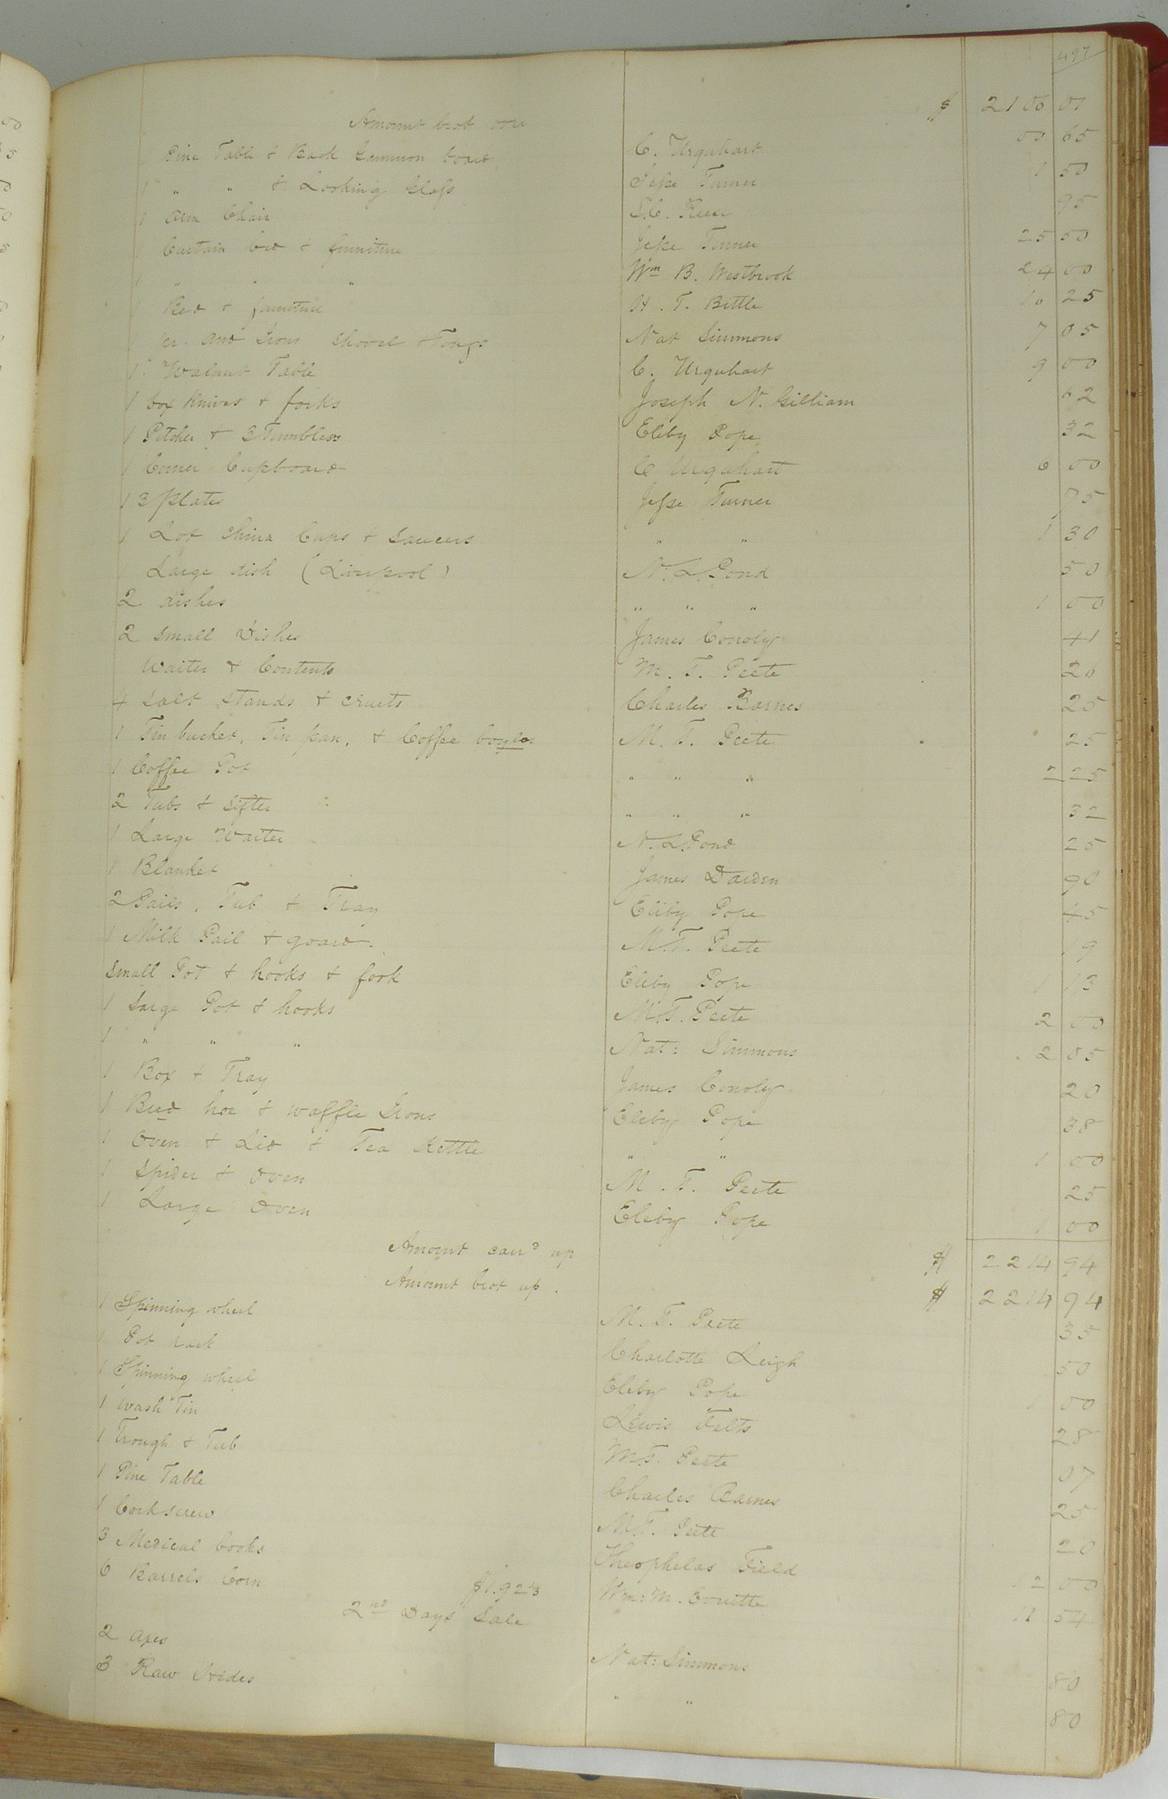 497
Amount brot over $ 2100 01
1 Pine Table & Back Gammon board C. Urquhart 00 65
1 " " & Looking Glass Jesse Turner 1 50
1 Arm Chair 95
1 Curtain bed & furniture Jesse Turner 25 50
1 " " " Wm B. Westbrook 24 00
1 Bed & furniture H. T. Bittle 10 25
1 pr. And Irons Shovel & Tongs Nat Simmons 7 05
1 Walnut Table C. Urquhart 9 00
1 box knives & forks Joseph N. Gilliam 62
1 Pitcher & 3 Tumblers Eleby Pope 32
1 Corner Cupboard C Urquhart 6 00
13 plates Jesse Turner 75
1 Lot China Cups & Saucers " " 1 30
1 Large dish (Liverpool) N. L. Pond 50
2 dishes " " " 1 00
2 small dishes James Conoly 41
Waiter & Contents M. T. Peete 26
4 Salt stands & cruets Charles Barnes 25
1 Tin bucket, Tin pan, & Coffee boyler M. T. Peete 25
1 Coffee Pot " " " 2 25
2 Tubs & sifter " " " 32
1 Large Waiter N. L. Pond 25
1 Blanket James Darden 90
2 Pails, Tub & Tray Eleby Pope 45
1 Milk Pail & goard. M. T. Peete 9
Small Pot & hooks & fork Eleby Pope 1 13
1 Large Pot & hooks M. T. Peete 2 00
1 " " " Nat: Simmons 2 05
1 Box & Tray James Conoly 20
1 Bred hoe & waffle Irons Eleby Pope 38
1 Oven & Lid & Tea Kettle " " 1 00
1 Spider & Oven M. T. Peete 25
1 Large Oven Eleby Pope 1 00
Amount carrd up $ 2214 94
Amount brot up. $ 2214 94
1 Spinning wheel M. T. Peete 35
1 Pot rack Charlotte Leigh 50
1 Spinning wheel Eleby Pope 1 00
1 Wash Tin Lewis Felts 28
1 Trough & Tub M. T. Peete 07
1 Pine Table Charles Barnes 25
1 Corkscrew M. T. Peete 20
3 Medical books Theophelas Field 12 00
6 Barrels Corn Wm: M. 11 54
2nd Days Sale
2 Axes Nat: Simmons 80
3 Raw Hides " " 80